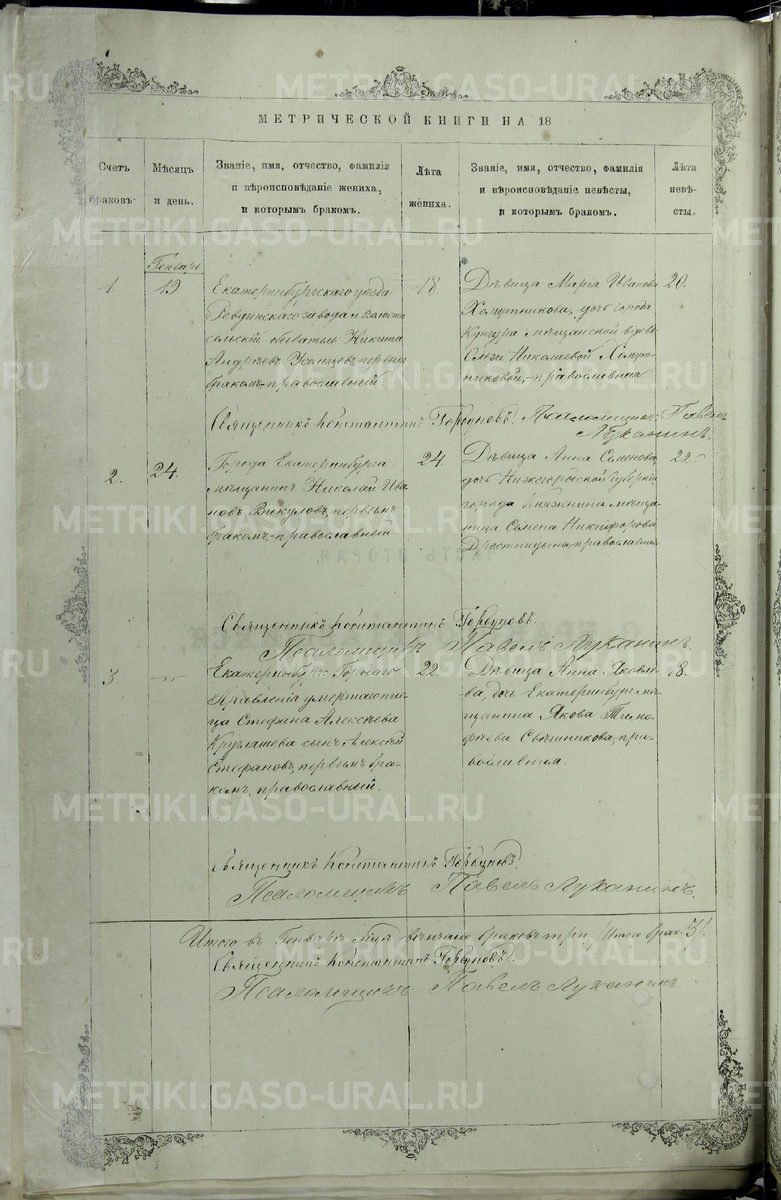 МЕТРИЧЕСКОЙ КНИГИ НА 18
Счетъ
браковъ.
Мѣсяцъ
и день.
Званіе, имя, отчество, фамилія
и вѣроисповѣданіе жениха,
и которымъ бракомъ.
Лѣта
жениха.
Званіе, имя, отчество, фамилія
и вѣроисповѣданіе невѣсты,
и которымъ бракомъ.
Лѣта
невѣ-
сты.
Генварь
1.
19.
Екатеринбургскаго уѣзда
Ревдинскаго завода и волости
сельскій обыватель Никита
Андреевъ Усольцевъ, первымъ
бракомъ, православный
18.
Дѣвица Марѳа Иванова
Хомутникова, дочь города
Кунгура мѣщанской вдовы
Ольги Николаевой Хомут-
никовой, православная
20.
Священникъ Константинъ Горбуновъ. Псаломщикъ Павелъ
Луканинъ.
2.
24.
Города Екатеринбурга
мѣщанинъ Николай Ива
новъ Викуловъ, первымъ
бракомъ, православный.
24.
Дѣвица Анна Семенова,
дочь Нижегородской губерніи
города Княгинина мѣща
нина Семена Никифорова
православная
22.
Священникъ Константинъ Горбуновъ.
Псаломщикъ Павелъ Луканинъ.
3.
Екатеринбург Горнаго
Правленія умершаго пис
ца Стефана Алексѣева
Круглашева сынъ Алексѣй
Стефановъ, первымъ бра-
комъ, православный.
22.
Дѣвица Анна Яковле
ва, дочь Екатеринбург мѣ
щанина Якова Тимо
фѣева Свѣшникова, пра-
вославная.
18.
Священникъ Константинъ Горбуновъ.
Псаломщикъ Павелъ Луканинъ.
Итого въ Генварѣ м-цѣ вѣнчано браковъ три. Итого брак. 3.
Священникъ Константинъ Горбуновъ.
Псаломщикъ Павелъ Луканинъ
METRIKI.GASO-URAL.RU